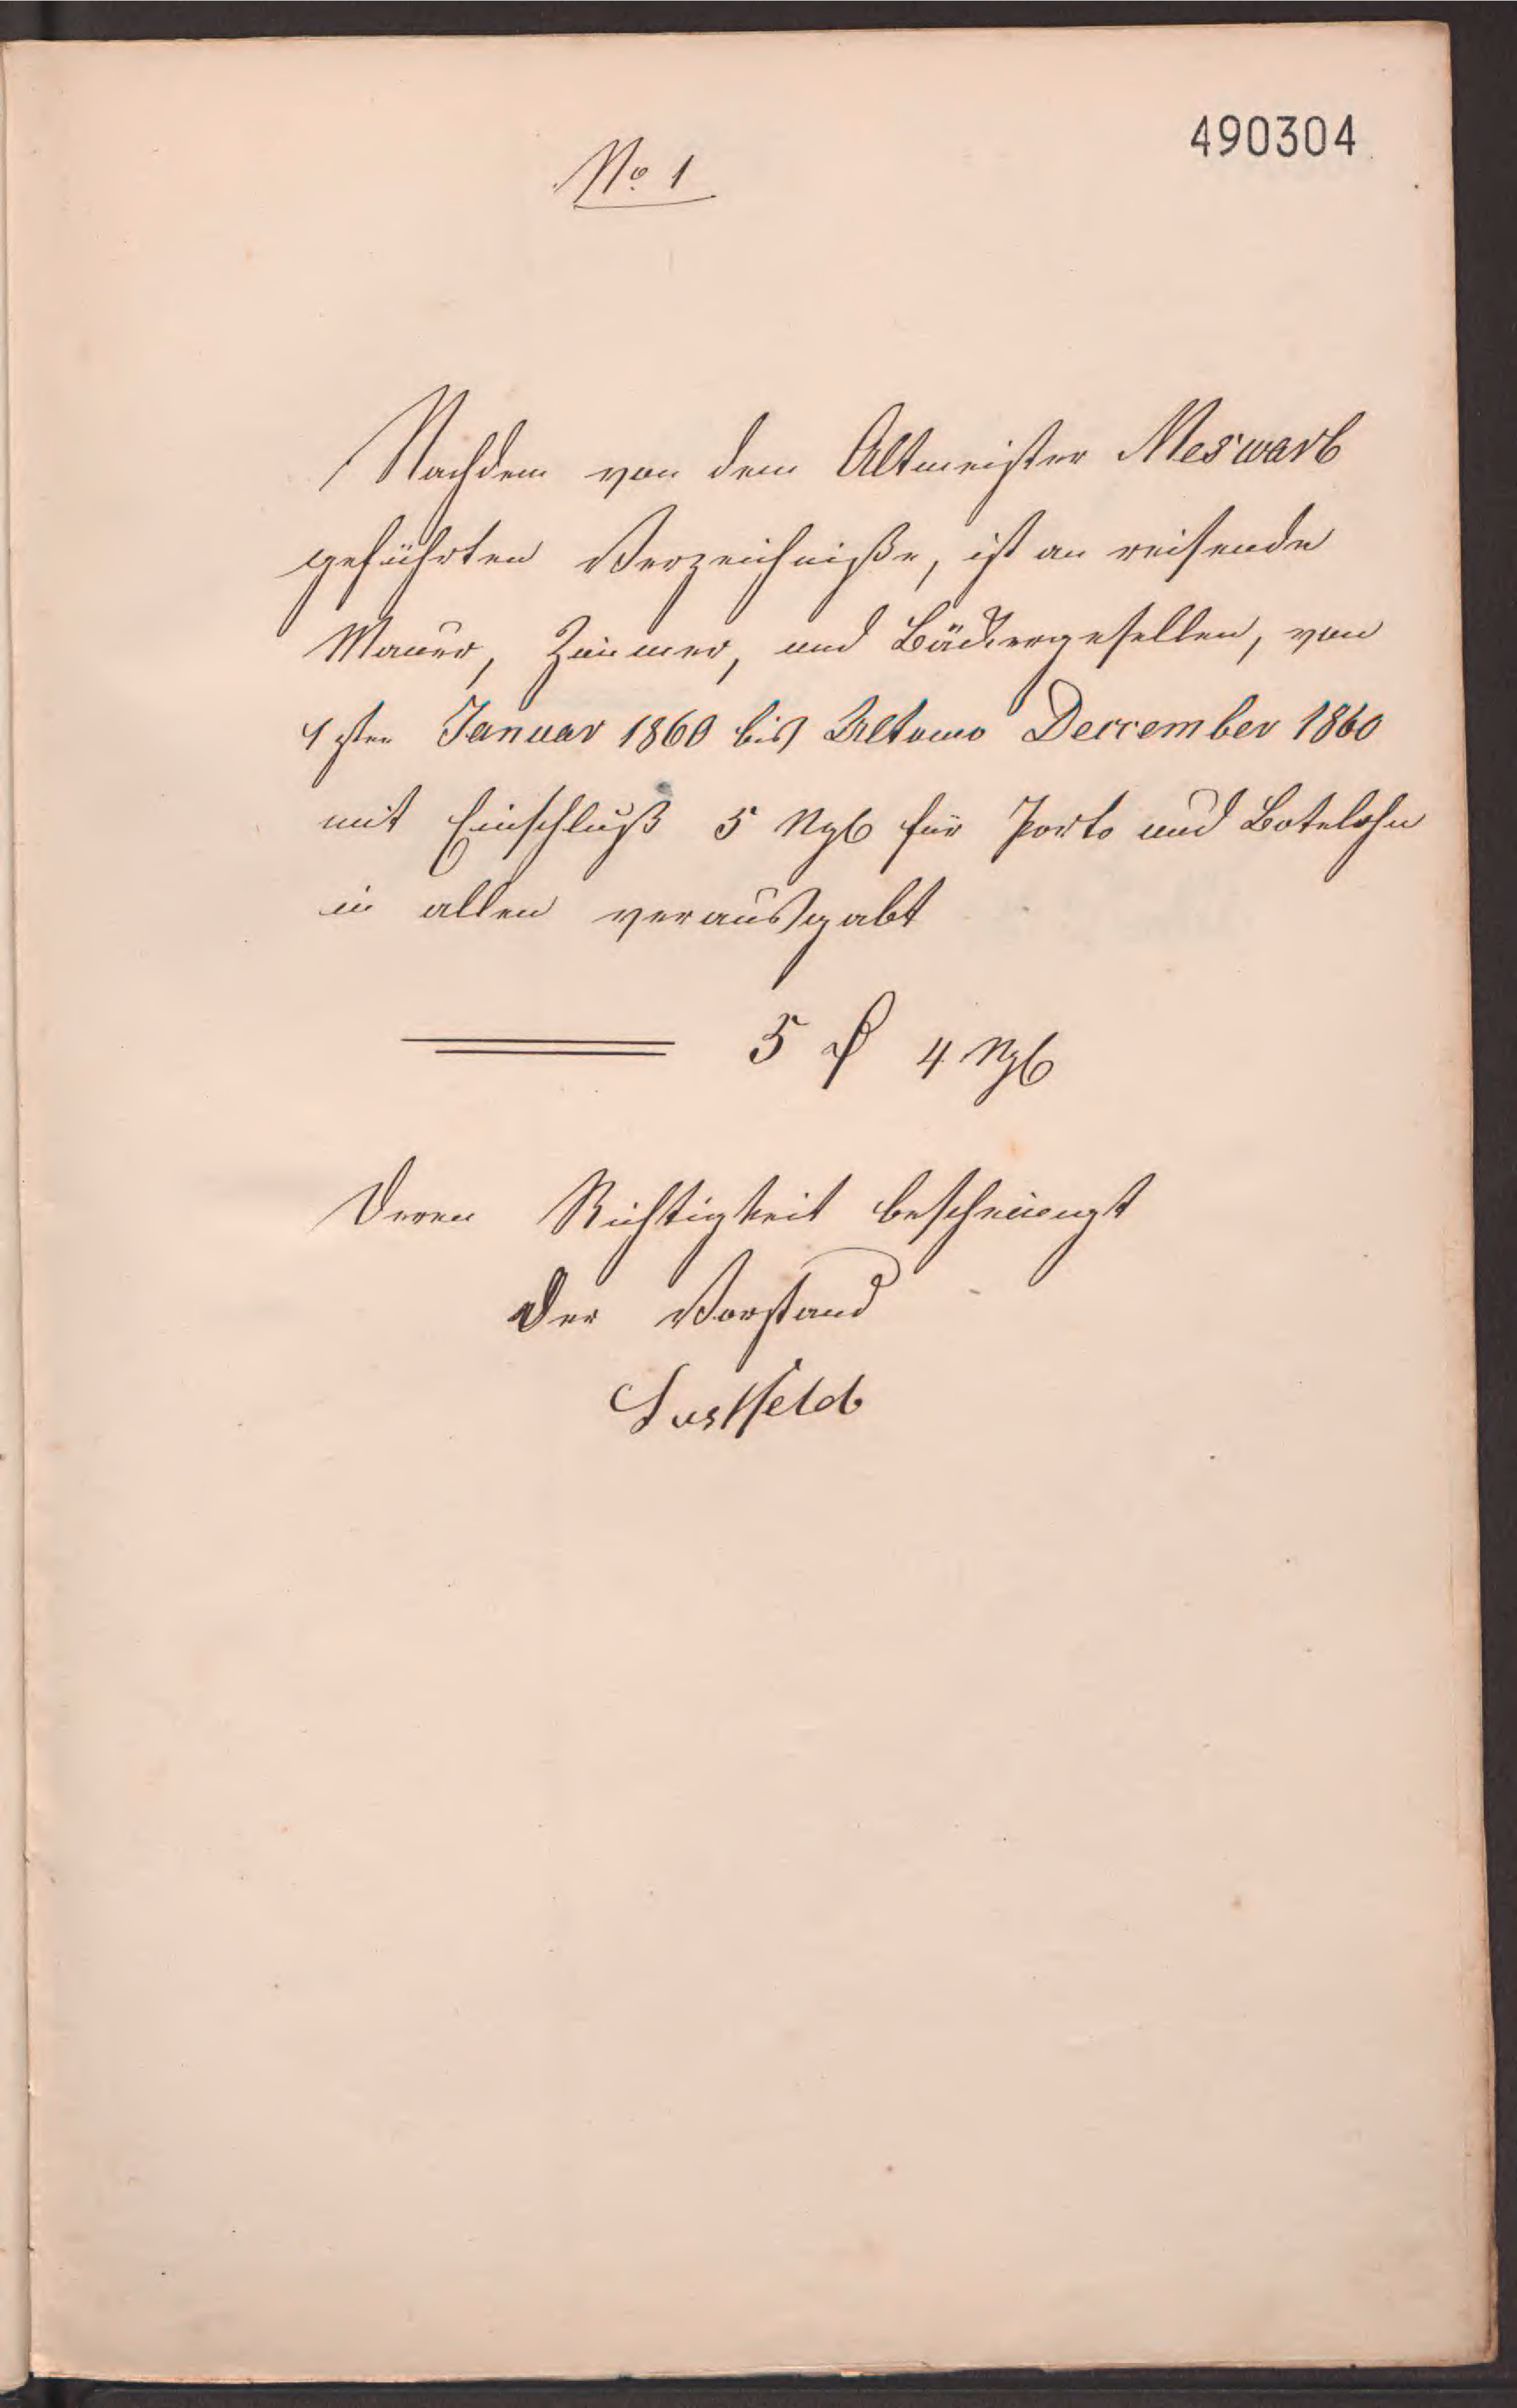 490304
No 1
Nachdem von dem Altmeister Meswarb
geführten Verzeichniße, ist an reisende
Mauer, Zimmer, und Bäckergesellen, von
1sten Januar 1860 bis Ultomo December 1860
mit Einschluß 5 Ngl für Porto und Botelohn
in allen verausgabt
5 ₰ 4 Ngl
Deren Richtigkeit bescheinigt
Der Vorstand
Lustfeld